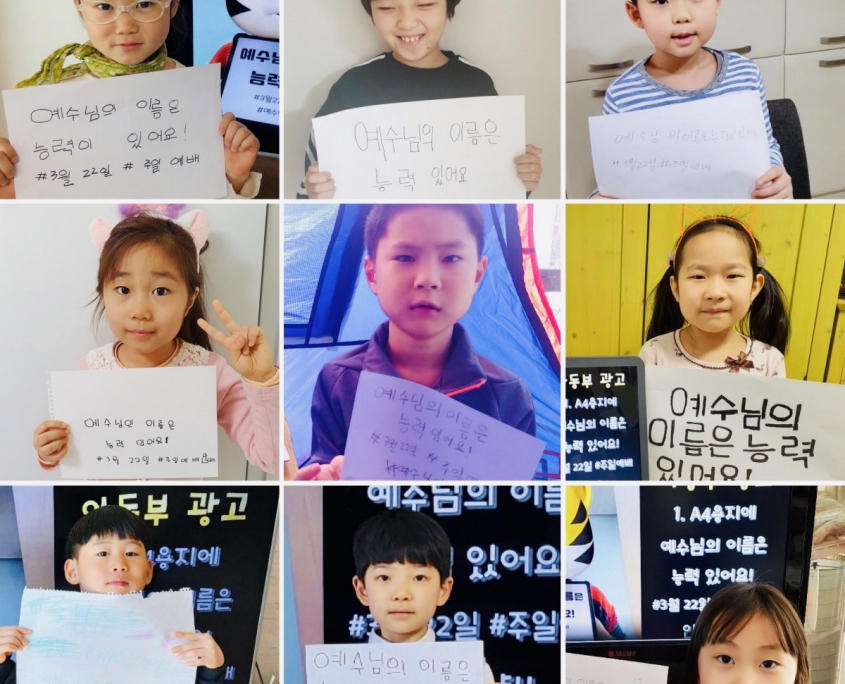 예수님
능력
#3월22
#예수
예수님의 이름은
능력이 있어요!
#3월 22일 #주일예배
예수님의 이름은
능력 있어요
예수님의 이름은
능력 있어요!
#3월 22일 #주일예배
예수님의 이름은
능력 있어요!
#3월 22일 #주일
동부 광고
1. A4용지에
수님의 이름은
능력 있어요!
월 22일 #주일예배
예수님의
이름은 능력
있어요!
아동부 광고
A4용지에
이름은
예수님의 이름
있어요
#3 22일 #주일
예수님의 이름은
1. A4용지에
예수님의 이름은
능력 있어요!
#3월 22일